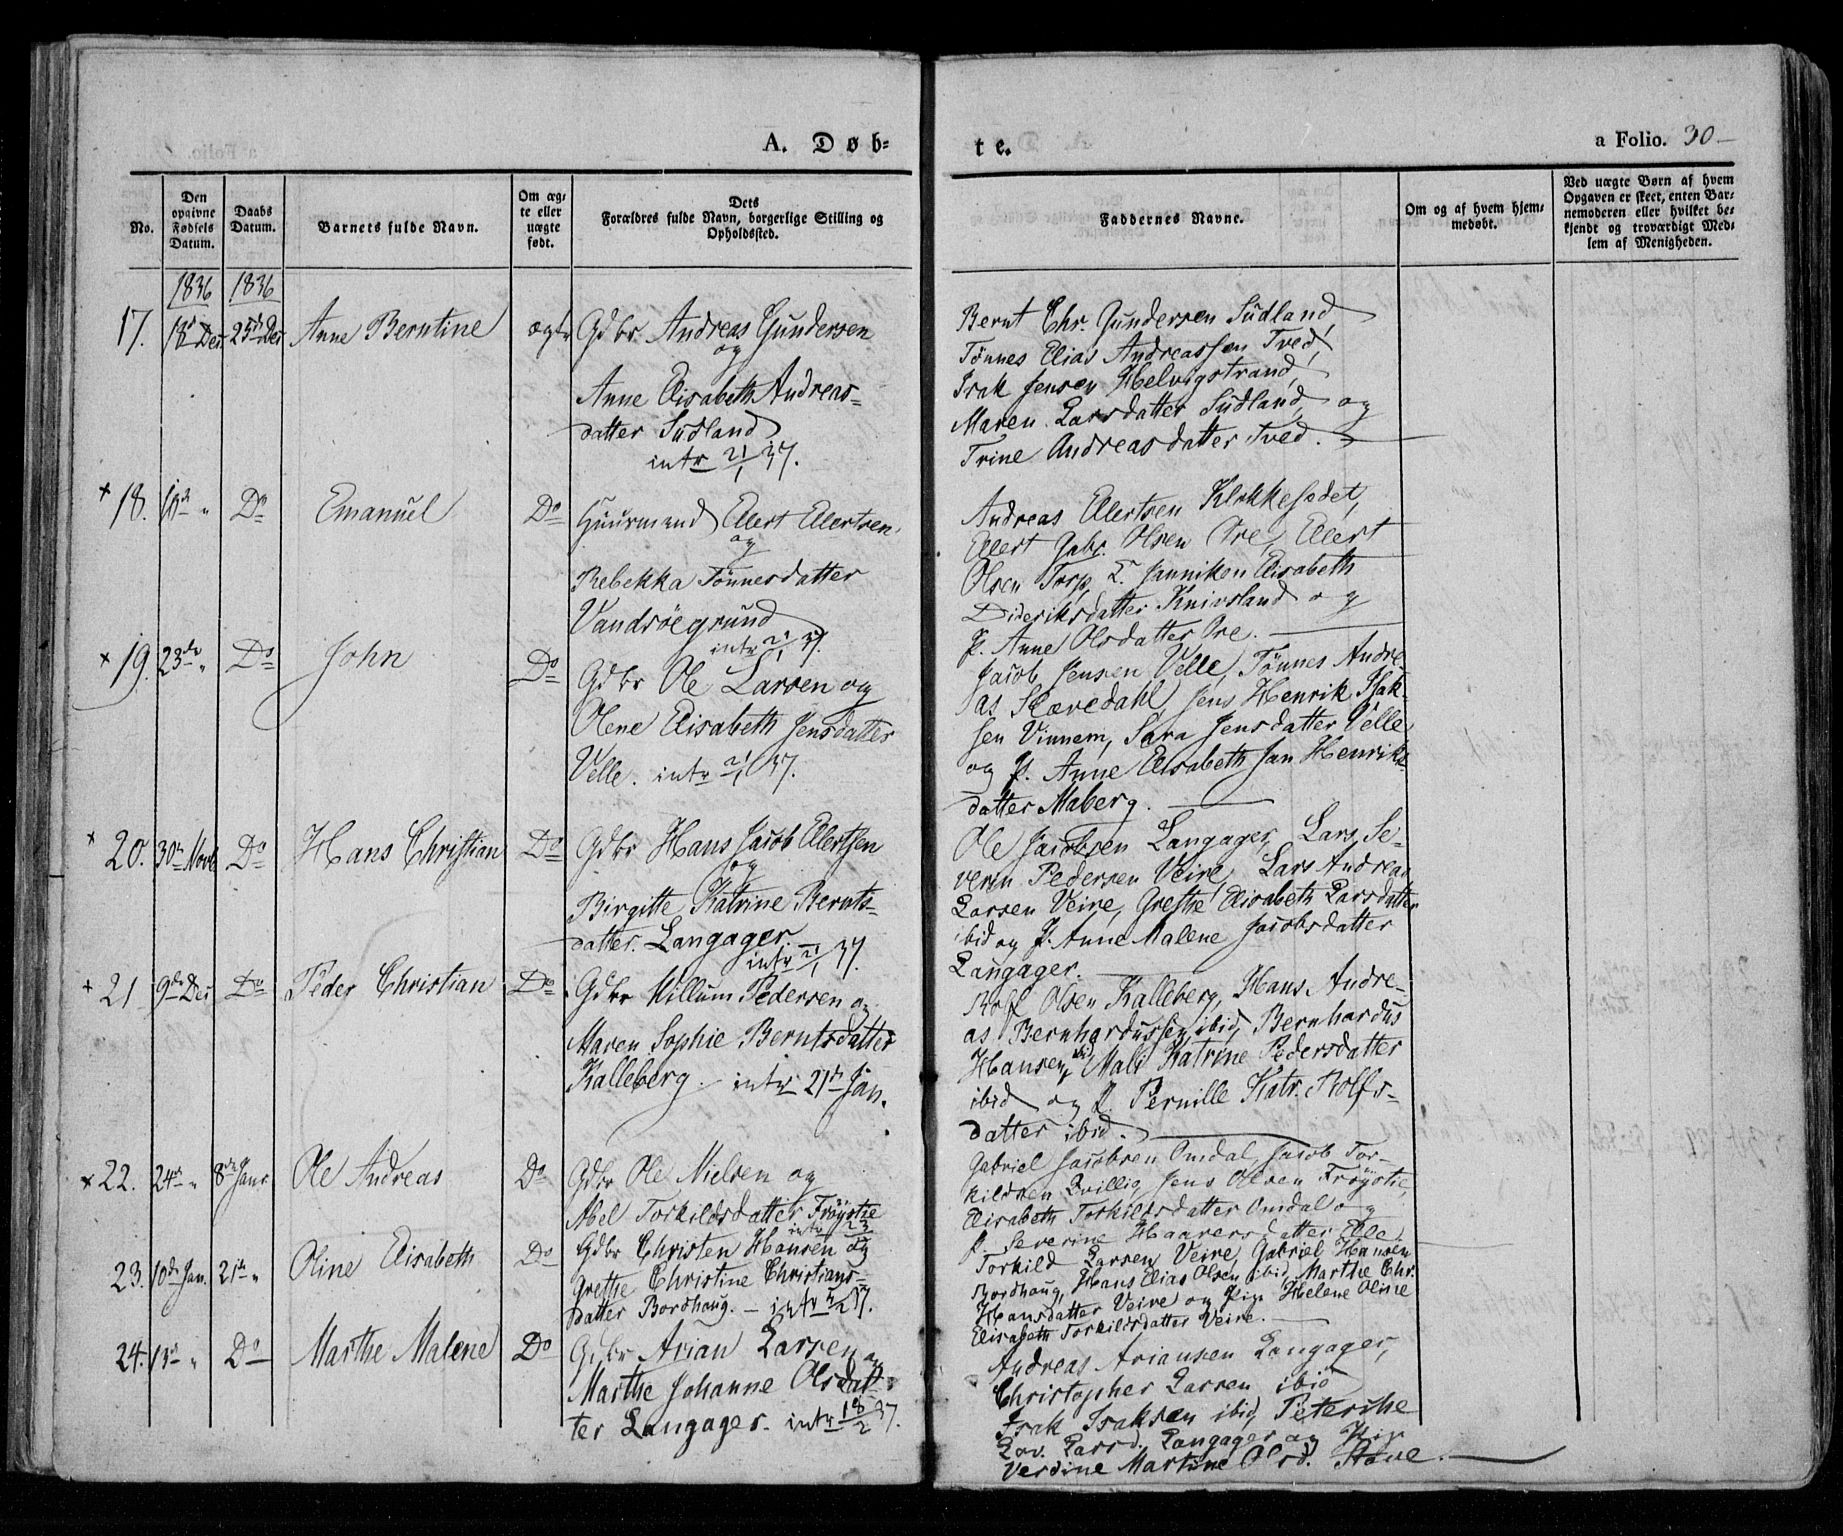 A. Døb-
te.
a Folio. 30
No.
Den opgivne Fødsels Datum.
Daabs Datum.
Barnets fulde Navn.
Om æg-te eller uægte født.
Dets
Forældres fulde Navn, borgerlige Stilling og
Opholdssted.
Faddernes Navne.
Om og af hvem hjem-
medøbt.
Ved uægte Børn af hvem
Opgaven er skeet, enten Bar-
nemoderen eller hvilket be-
kjendt og troværdigt Med-
lem af Menigheden.
1836 1836
17. 25de Des Anne Berntine ægte Gdbr Andreas Gundersen
og
Anne Elisabeth Andreas-
datter Sudland
intr 21/1 37.
Bernt Chr. Gundersen Sudland,
Tönnes Elias Andreassen Tved,
Isak Jensen Helvigstrand,
Maren Larsdatter Sudland, og
Trine Andreasdatter Tved.
+ 18. 10de " Do Emanuel Do Huusmand Elert Elertsen
og
Rebekka Tönnesdatter
Vandsöegrund
intr 21/1 37.
Andreas Elertsen
Elert Gabr. Olsen Ore, Elert
Olsen Torp, Janniken Elisabeth
Dideriksdatter Knivsland og
P. Anne Olsdatter Ore.
+ 19. 23de " Do John Do Gdbr Ole Larsen og
Olene Elisabeth Jensdatter
Velle. intr 21/1 37.
Jacob Jensen Velle, Tönnes Andre-
as Skövedahl, Jens Henrik Isak-
sen Vinnem, Sara Jensdatter Velle
og P. Anne Elisabeth Jan Henriks-
datter Maberg.
+ 20. 30te Novb Do Hans Christian Do Gdbr Hans Jacob Elertsen
og
Birgitte Katrine Bernts-
datter Langager.
intr 21/1 37.
Ole Jacobsen Langager, Lars Se-
verin Pedersen Veire, Lars Andreas
Larsen Veire, Grethe Elisabeth Larsdatter
ibid og P. Anne Malene Jacobsdatter
Langager.
+ 21 9de Des Do Peder Christian Do Gdbr Villum Pedersen og
Maren Sophie Berntsdatter
Kalleberg. intr 21de Jan.
Rolf Olsen Kalleberg, Hans Andre-
as Bernhardussen ibid, Bernhardus
Hansen ibid, Mali Katrine Pedersdatter
ibid og P. Pernille Katr. Rolfs-
datter ibid.
+ 22. 24de " 8de Janr Ole Andreas Do Gdbr Ole Nielsen og
Abel Torkildsdatter Fröystie
Gabriel Jacobsen Omdal, Jacob Tor-
kildsen Qvillig, Jens Olsen Fröystie,
Elisabeth Torkildsdatter Omdal og
P. Severine Haaversdatter Elle.
23. 10de Jan. 21de " Oline Elisabeth Do Gdbr Christen Hansen og
Grethe Christine Christians-
datter Bordhaug. intr
Torkild Larsen Veire, Gabriel Hansen
Bordhaug, Hans Elias Olsen ibid, Marthe Chr.
Hansdatter Veire og Pige Helene Oline
Elisabeth Torkildsdatter Veire.
24. 13de " Do Marthe Malene Do Gdbr Arian Larsen og
Marthe Johanne Olsdat-
ter Langager. intr 18/2 37.
Andreas Ariansen Langager,
Christopher Larsen ibid
Isak Isaksen ibid, Peterike
Lov. Larsd. Langager og Pige
Verdine Martine Olsd. Stave.